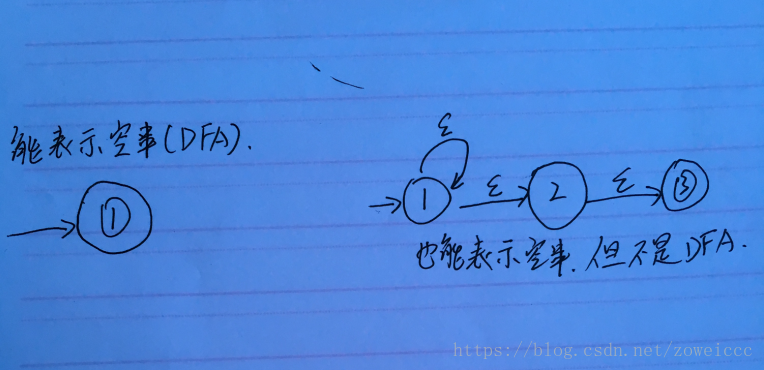 能表示空串(DFA).
①
ε
1 ε 2 ε ③
也能表示空串.但不是DFA.
https://blog.csdn.net/zoweiccc